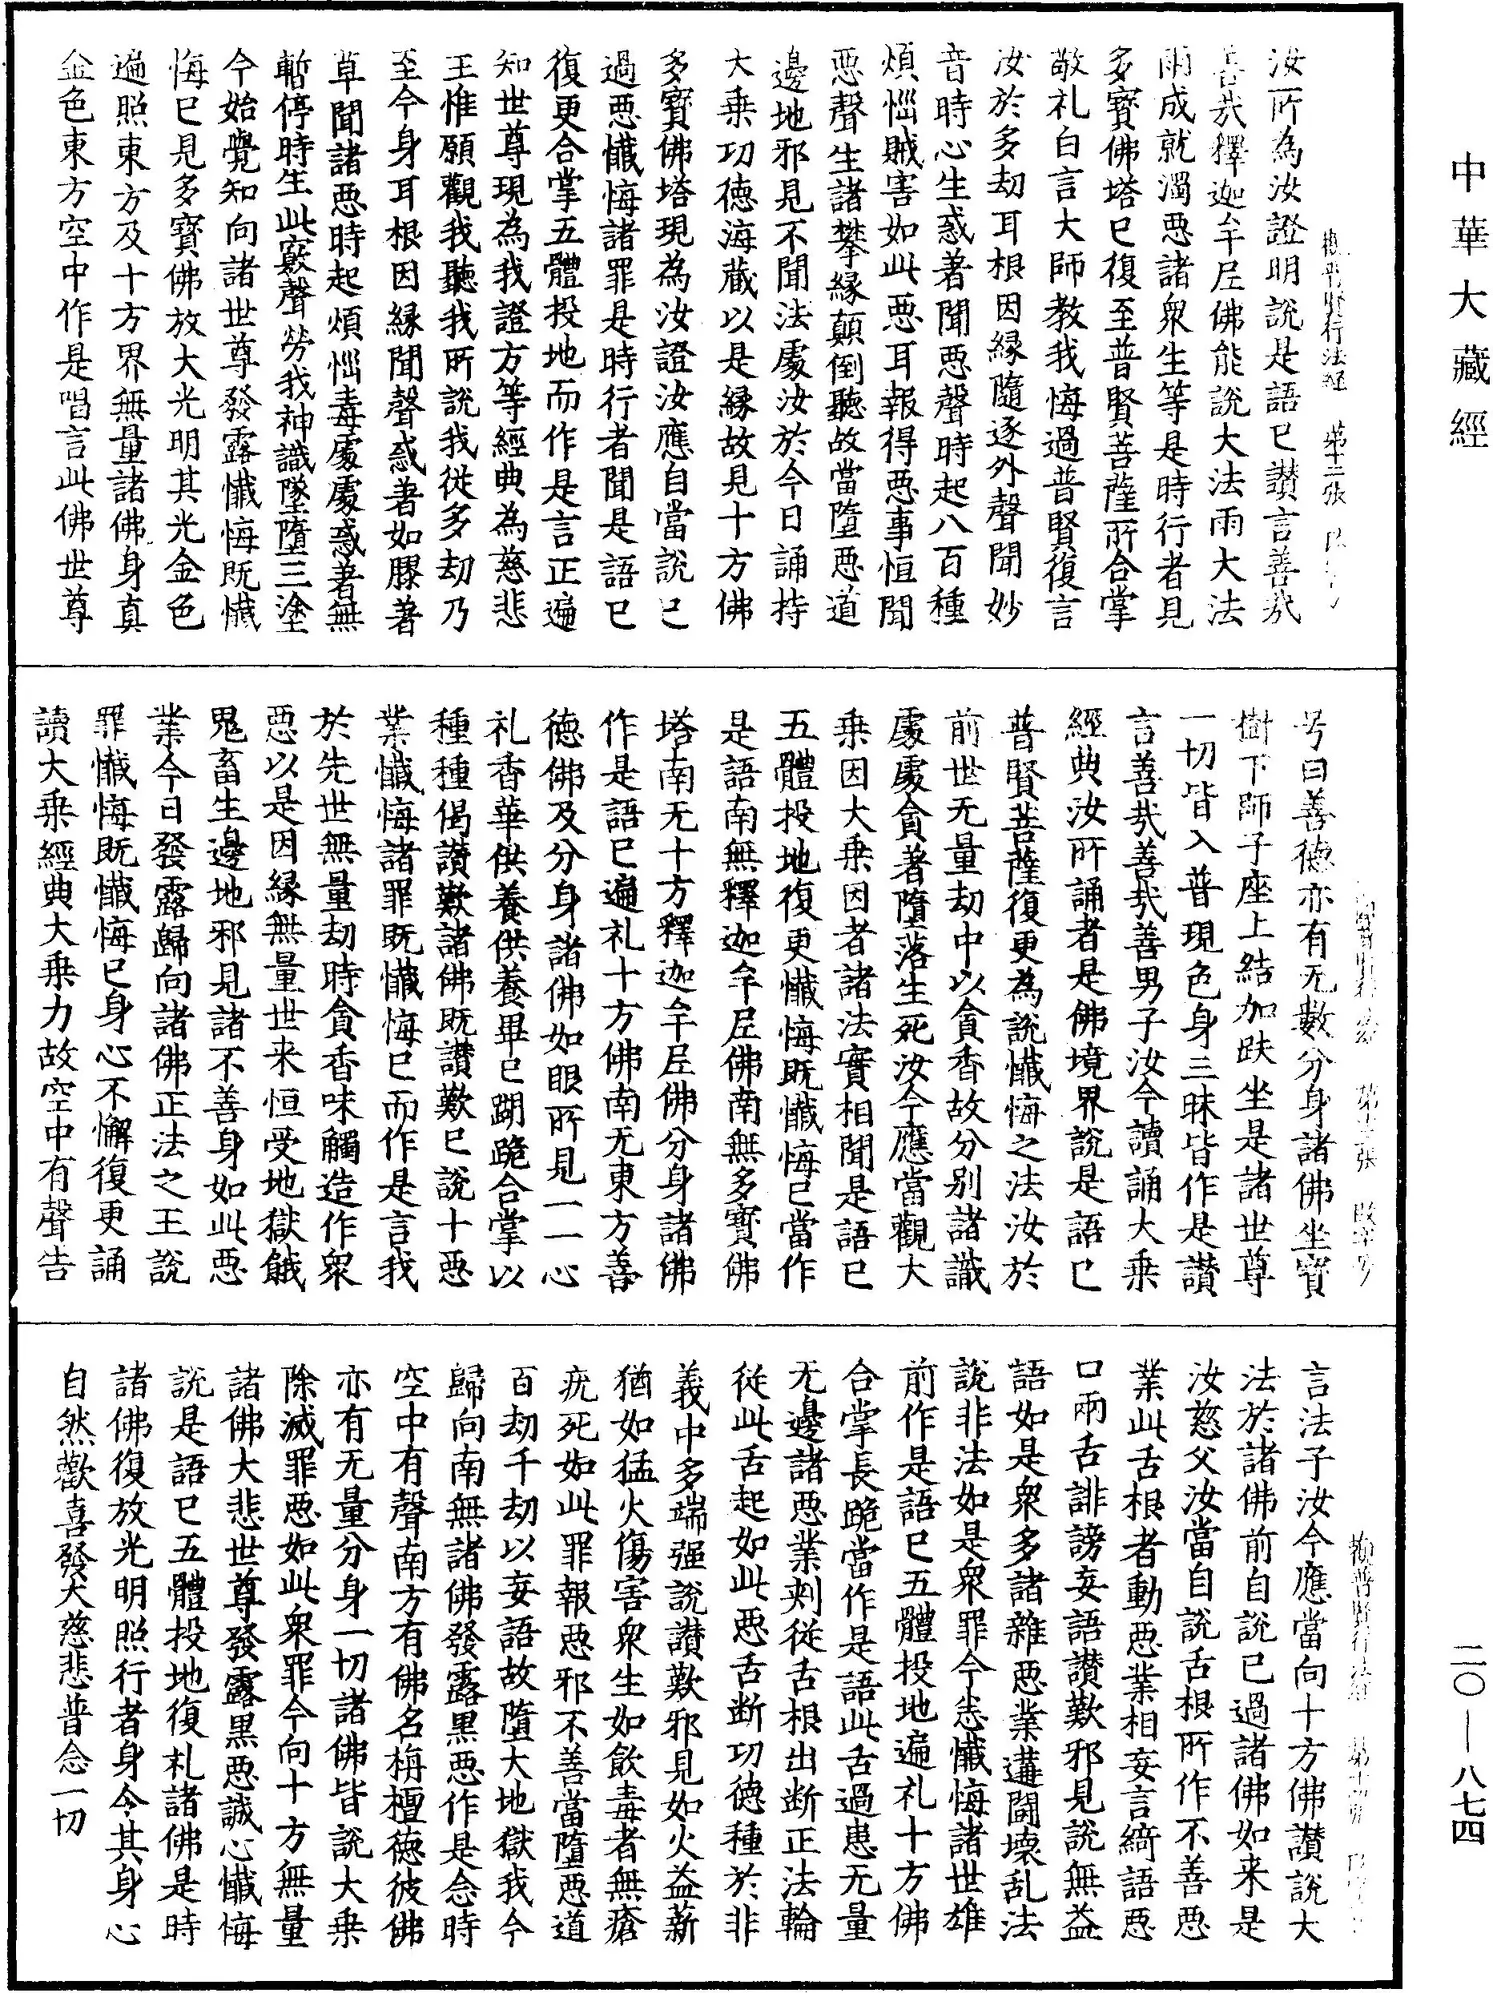 中華大藏經
汝所為汝證明說是語已讚言善哉
善哉釋迦牟尼佛能說大法雨大法
雨成就濁惡諸衆生等是時行者見
多寶佛塔已復至普賢菩薩所合掌
敬礼白言大師教我悔過普賢復言
汝於多劫耳根因緣隨逐外聲聞妙
音時心生惑著聞惡聲時起八百種
煩惱賊害如此惡耳報得惡事恒聞
惡聲生諸攀緣顛倒聽故當墮惡道
邊地邪見不聞法處汝於今日誦持
大乗功德海藏以是緣故見十方佛
多寶佛塔現為汝證汝應自當說已
過惡懺悔諸罪是時行者聞是語已
復更合掌五體投地而作是言正遍
知世尊現為我證方等經典為慈悲
王惟願觀我聽我所說我從多劫乃
至今身耳根因緣聞聲惑著如膠著
草聞諸惡時起煩惱毒處處惑著無
暫停時生此竅聲勞我神識墜墮三塗
今始覺知向諸世尊發露懺悔既懺
悔已見多寶佛放大光明其光金色
遍照東方及十方界無量諸佛身真
金色東方空中作是唱言此佛世尊
号曰善德亦有无數分身諸佛坐寶
樹下師子座上結加趺坐是諸世尊
一切皆入普現色身三昧皆作是讚
言善哉善哉善男子汝今讀誦大乗
經典汝所誦者是佛境界說是語已
普賢菩薩復更為說懺悔之法汝於
前世无量劫中以貪香故分別諸識
處處貪著墮落生死汝今應當觀大
乗因大乗因者諸法實相聞是語已
五體投地復更懺悔既懺悔已當作
是語南無釋迦牟尼佛南無多寶佛
塔南无十方釋迦牟尼佛分身諸佛
作是語已遍礼十方佛南无東方善
德佛及分身諸佛如眼所見一一心
礼香華供養供養畢已䠒跪合掌以
種種偈讚歎諸佛既讚歎已說十惡
業懺悔諸罪既懺悔已而作是言我
於先世無量劫時貪香味觸造作衆
惡以是因緣無量世来恒受地獄餓
鬼畜生邊地邪見諸不善身如此惡
業今日發露歸向諸佛正法之王說
罪懺悔既懺悔已身心不懈復更誦
讀大乗經典大乗力故空中有聲告
言法子汝今應當向十方佛讚說大
法於諸佛前自說已過諸佛如来是
汝慈父汝當自說舌根所作不善惡
業此舌根者動惡業相妄言綺語惡
口兩舌誹謗妄語讚歎邪見說無益
語如是衆多諸雜惡業遘鬪壞乱法
說非法如是衆罪今悉懺悔諸世雄
前作是語已五體投地遍礼十方佛
合掌長跪當作是語此舌過患无量
无邊諸惡業刾從舌根出断正法輪
從此舌起如此惡舌断功德種於非
義中多端强說讚歎邪見如火益薪
猶如猛火傷害衆生如飲毒者無瘡
疣死如此罪報惡邪不善當墮惡道
百劫千劫以妄語故墮大地獄我今
歸向南無諸佛發露黒惡作是念時
空中有聲南方有佛名栴檀德彼佛
亦有无量分身一切諸佛皆說大乗
除滅罪惡如此衆罪今向十方無量
諸佛大悲世尊發露黒惡誠心懺悔
說是語已五體投地復礼諸佛是時
諸佛復放光明照行者身令其身心
自然歡喜發大慈悲普念一切
二〇—八七四